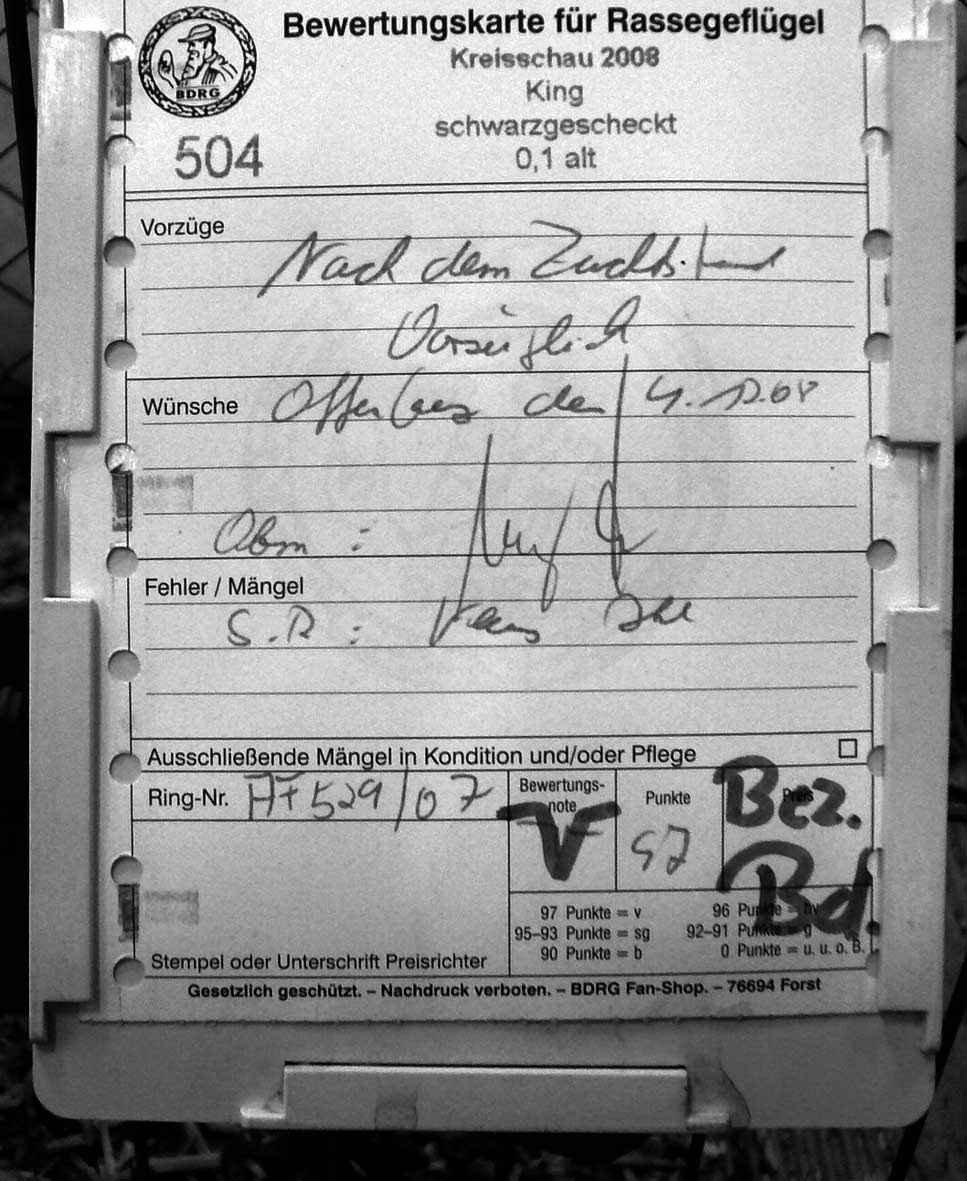 Bewertungskarte für Rassegeflügel
Kreisschau 2008
King
schwarzgescheckt
0,1 alt
BDRG
504
Vorzüge
Nach dem Zuchtstand
Vorzüglich
Wünsche
den 4.12.08
Obm :
Fehler / Mängel
S.R :
Ausschließende Mängel in Kondition und/oder Pflege
Ring-Nr. 529/07
Bewertungs-
note
V
Punkte
97
Preis
Bez.
Bd.
97 Punkte = v
96 Punkte = hv
95–93 Punkte = sg
92–91 Punkte = g
90 Punkte = b
0 Punkte = u. u. o. B.
Stempel oder Unterschrift Preisrichter
Gesetzlich geschützt. – Nachdruck verboten. – BDRG Fan-Shop. – 76694 Forst